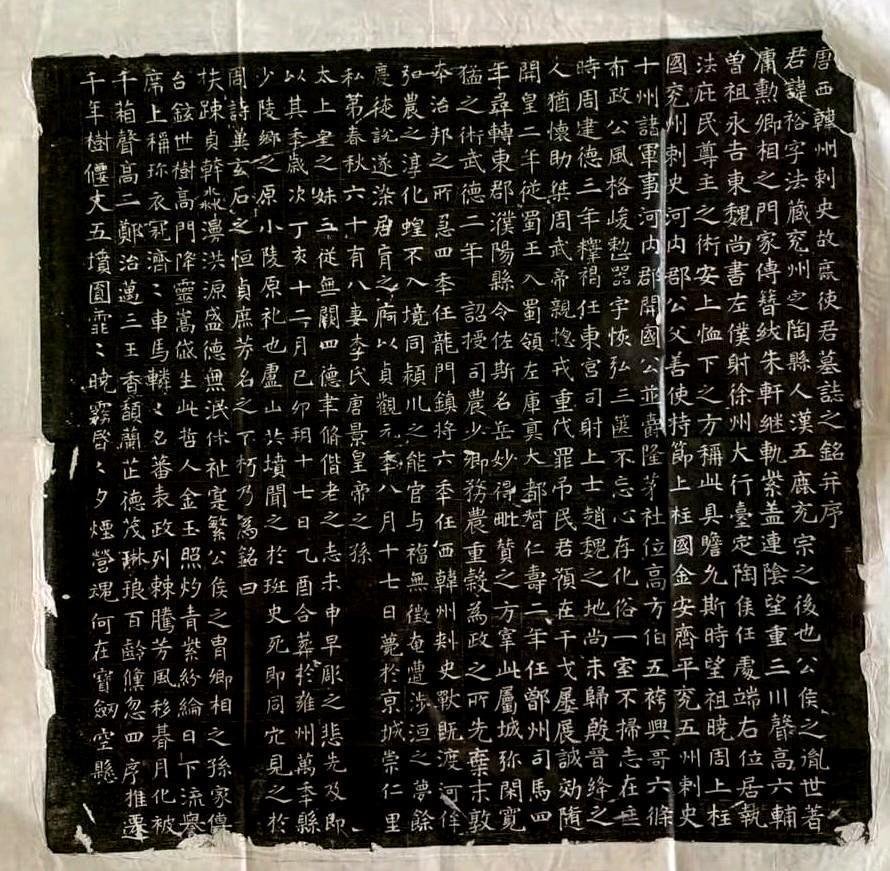 唐西韓州刺史故鹿使君墓誌之銘并序
君諱裕字法藏兖州之陶縣人漢五鹿充宗之後也公侯之胤世著
庸勲卿相之門家傳簪紱朱軒継軌紫盖連陰望重三川聲高六輔
曽祖永吉東魏尚書左僕射徐州大行臺定陶侯任處端右位居執
法庇民尊主之術安上恤下之方稱此具瞻允斯時望祖曉周上柱
國兖州刺史河内郡公父善使持節上柱國金安齊平兖五州刺史
十州諸軍事河内郡開國公並爵隆茅社位高方伯五袴興哥六條
布政公風格峻慜器宇恢弘三篋不忘心存化俗一室不掃志在
時周建德三年釋褐任東宫司射上士趙魏之地尚未歸殷晉絳之
人猶懷助桀周武帝親摠戎重伐罪吊民君預在干戈屢展誠効隨
開皇二年従蜀王入蜀領左庫真大都督仁壽二年任鄫州司馬四
年尋轉東郡濮陽縣令佐斯名岳妙得毗賛之方宰此屬城弥閑寛
猛之術武德二年 詔授司農少卿務農重榖為政之所先棄末敦
夲治邦之所急四年任龍門鎮將六年任西韓州刺史獸既渡河侔
弘農之淳化蝗不入境同頴川之能官与福無徵奄遭渉洹之夢餘
慶徒説遂染居肓之病以貞觀元年八月十七日薨於京城崇仁里
私第春秋六十有八妻李氏唐景皇帝之孫
太上皇之妹三従無闕四德聿脩偕老之志未申早彫之悲先及即
以其年歳次丁亥十二月己卯朔十七日乙酉合葬於雍州萬年縣
少陵鄉之原小陵原礼也盧山共墳聞之於班史死即同穴見之於
周詩並玄石之恒貞庶芳名之不朽乃為銘曰
扶踈貞幹淼漭洪源盛德無泯休祉寔繁公侯之胄卿相之孫家傳
台鉉世樹高門降靈嵩岱生此哲人金玉照灼青紫紛綸日下流譽
席上稱珎衣冠濟〻車馬轔〻名蕃表政列棘騰芳風移朞月化被
千箱聲高二鄭治邁三王香頽蘭芷德茂琳琅百齡儵忽四序推遷
千年樹偃丈五墳圓霏〻曉霧昏〻夕煙營魂何在寳劒空懸